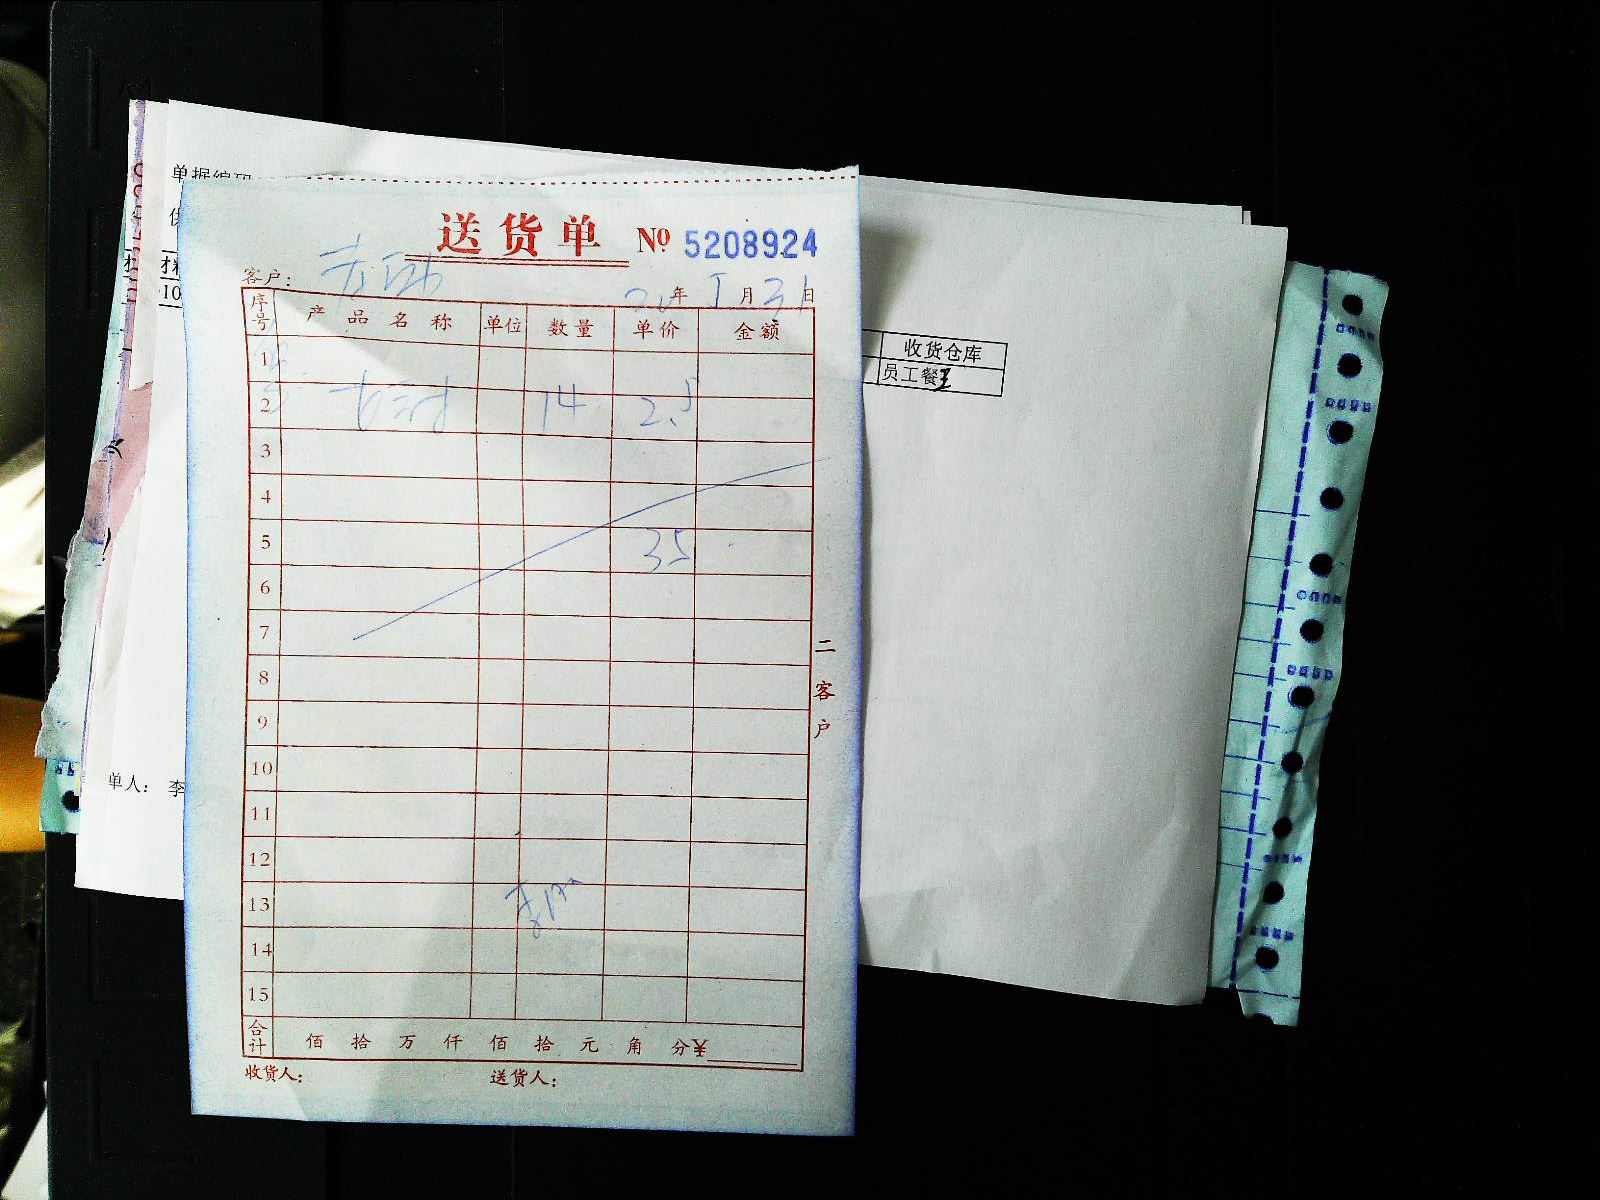 单据编码
供
材料
10
送货单 № 5208924
客户：
20 年 1 月 31 日
序号 产品名称 单位 数量 单价 金额
1
2 14 2.5
3
4
5 35
6
7
8
9
10
11
12
13
14
15
合计 佰 拾 万 仟 佰 拾 元 角 分 ¥
收货人： 送货人：
二客户
收货仓库
员工餐
单人： 李